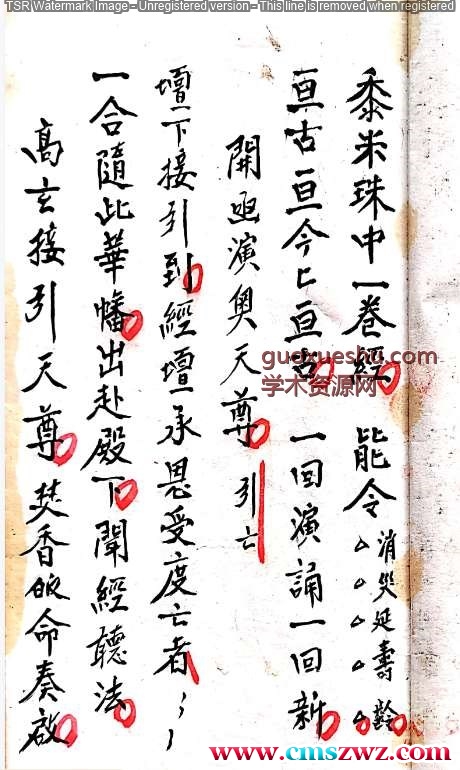 TSR Watermark Image - Unregistered version - This line is removed when registered
黍米珠中一卷經 能令
消灾延壽齡
亘古亘今亡亘古 一回演誦一回新
開函演奧天尊 引亡
壇下接引到經壇承恩受度亡者
一合隨此華幡出赴殿下聞經聽法
高玄接引天尊焚香皈命奏啟
guoxueshu.com
学术资源网
www.cmszwz.com